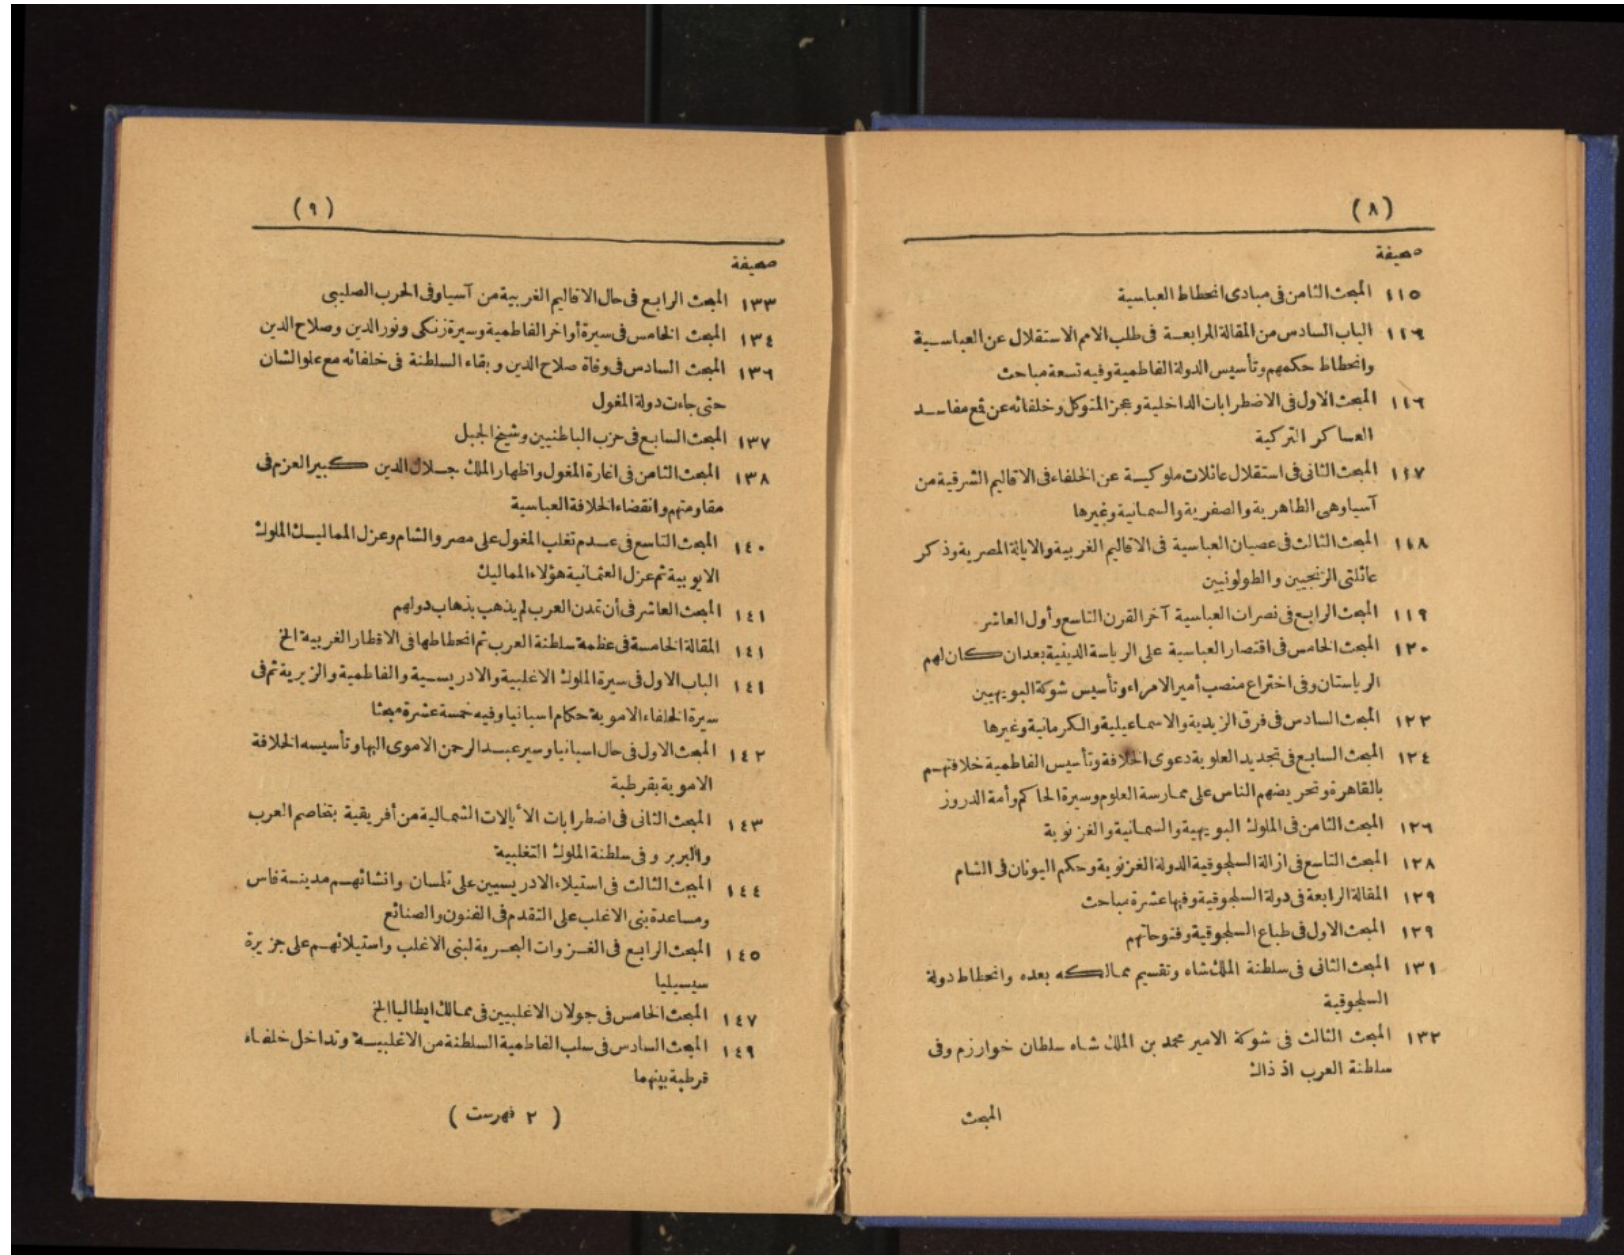 (٨)
صحيفة
١١٥ المبحث الثامن فى مبادى انحطاط العباسية
١١٦ الباب السادس من المقالة الرابعة فى طلب الامم الاستقلال عن العباسية
وانحطاط حكمهم وتأسيس الدولة الفاطمية وفيه تسعة مباحث
١١٦ المبحث الاول فى الاضطرابات الداخلية وعجز المتوكل وخلفائه عن قمع مفاسد
العساكر التركية
١١٧ المبحث الثانى فى استقلال عائلات ملوكية عن الخلفاء فى الاقاليم الشرقية من
آسيا وهى الطاهرية والصفرية والسمانية وغيرها
١١٨ المبحث الثالث فى عصيان العباسية فى الاقاليم الغربية والايالة المصرية وذكر
عائلتى الزنجيين والطولونيين
١١٩ المبحث الرابع فى نصرات العباسية آخر القرن التاسع وأول العاشر
١٢٠ المبحث الخامس فى اقتصار العباسية على الرياسة الدينية بعد ان كان لهم
الرياستان وفى اختراع منصب أمير الامراء وتأسيس شوكة البويهيين
١٢٢ المبحث السادس فى فرق الزيدية والاسماعيلية والكرمانية وغيرها
١٢٤ المبحث السابع فى تجديد العلوية دعوى الخلافة وتأسيس الفاطمية خلافتهم
بالقاهرة وتحريضهم الناس على ممارسة العلوم وسيرة الحاكم وأمة الدروز
١٢٦ المبحث الثامن فى الملوك البويهية والسمانية والغزنوية
١٢٨ المبحث التاسع فى ازالة السلجوقية الدولة الغزنوية وحكم اليونان فى الشام
١٢٩ المقالة الرابعة فى دولة السلجوقية وفيها عشرة مباحث
١٢٩ المبحث الاول فى طباع السلجوقية وفتوحاتهم
١٣١ المبحث الثانى فى سلطنة الملك شاه وتقسيم ممالكه بعده وانحطاط دولة
السلجوقية
١٣٢ المبحث الثالث فى شوكة الامير محمد بن الملك شاه سلطان خوارزم وفى
سلطنة العرب اذ ذاك
المبحث
(٩)
صحيفة
١٣٣ المبحث الرابع فى حال الاقاليم الغربية من آسيا وفى الحرب الصليبى
١٣٤ المبحث الخامس فى سيرة أواخر الفاطمية وسيرة زنكى ونور الدين وصلاح الدين
١٣٦ المبحث السادس فى وفاة صلاح الدين وبقاء السلطنة فى خلفائه مع علو الشان
حتى جاءت دولة المغول
١٣٧ المبحث السابع فى حزب الباطنيين وشيخ الجبل
١٣٨ المبحث الثامن فى اغارة المغول واظهار الملك جلال الدين كبير العزم فى
مقاومتهم وانقضاء الخلافة العباسية
١٤٠ المبحث التاسع فى عدم تغلب المغول على مصر والشام وعزل المماليك الملوك
الايوبية ثم عزل العثمانية هؤلاء المماليك
١٤١ المبحث العاشر فى أن تمدن العرب لم يذهب بذهاب دولهم
١٤١ المقالة الخامسة فى عظمة سلطنة العرب ثم انحطاطها فى الاقطار الغربية الخ
١٤١ الباب الاول فى سيرة الملوك الاغلبية والادريسية والفاطمية والزيرية ثم فى
سيرة الخلفاء الاموية حكام اسبانيا وفيه خمسة عشرة مبحثا
١٤٢ المبحث الاول فى حال اسبانيا وسير عبد الرحمن الاموى اليها وتأسيسه الخلافة
الاموية بقرطبة
١٤٣ المبحث الثانى فى اضطرابات الأيالات الشمالية من أفريقية بتخاصم العرب
والبربر وفى سلطنة الملوك التغلبية
١٤٤ المبحث الثالث فى استيلاء الادريسيين على تلمسان وانشائهم مدينة فاس
ومساعدة بنى الاغلب على التقدم فى الفنون والصنائع
١٤٥ المبحث الرابع فى الغزوات البحرية لبنى الاغلب واستيلائهم على جزيرة
سيسيليا
١٤٧ المبحث الخامس فى جولان الاغلبيين فى ممالك ايطاليا الخ
١٤٩ المبحث السادس فى سلب الفاطمية السلطنة من الاغلبية وتداخل خلفاء
قرطبة بينهما
(٢ فهرست)